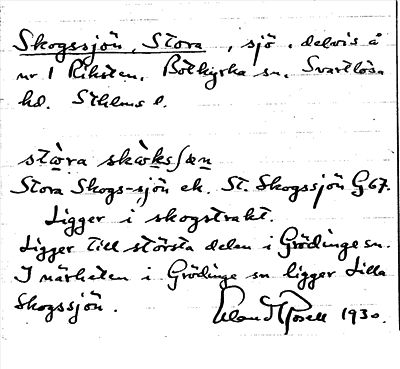 Skogssjön, Stora, sjö, delvis å
nr 1 Riksten, Botkyrka sn, Svartlösa
hd. Sthlms l.
stɷra skɷksʃœn
Stora Skogs-sjön ek. St. Skogssjön G67.
Ligger i skogstrakt.
Ligger till största delen i Grödinge sn.
I närheten i Grödinge sn ligger Lilla
Skogssjön. 1930.